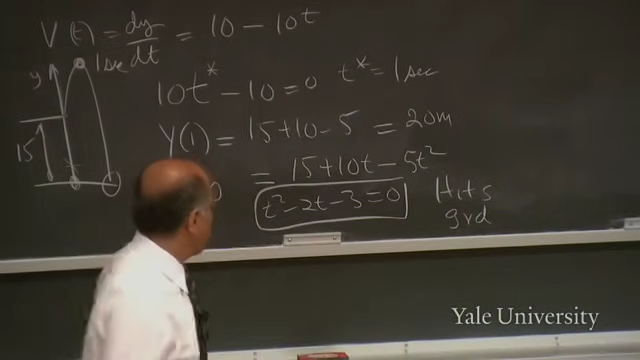 V(t) = dy/dt = 10 - 10t
y
1sec
10t* - 10 = 0 t* = 1sec
15
Y(1) = 15+10-5 = 20m
0 = 15+10t - 5t²
t²-2t-3=0
Hits
grd
Yale University